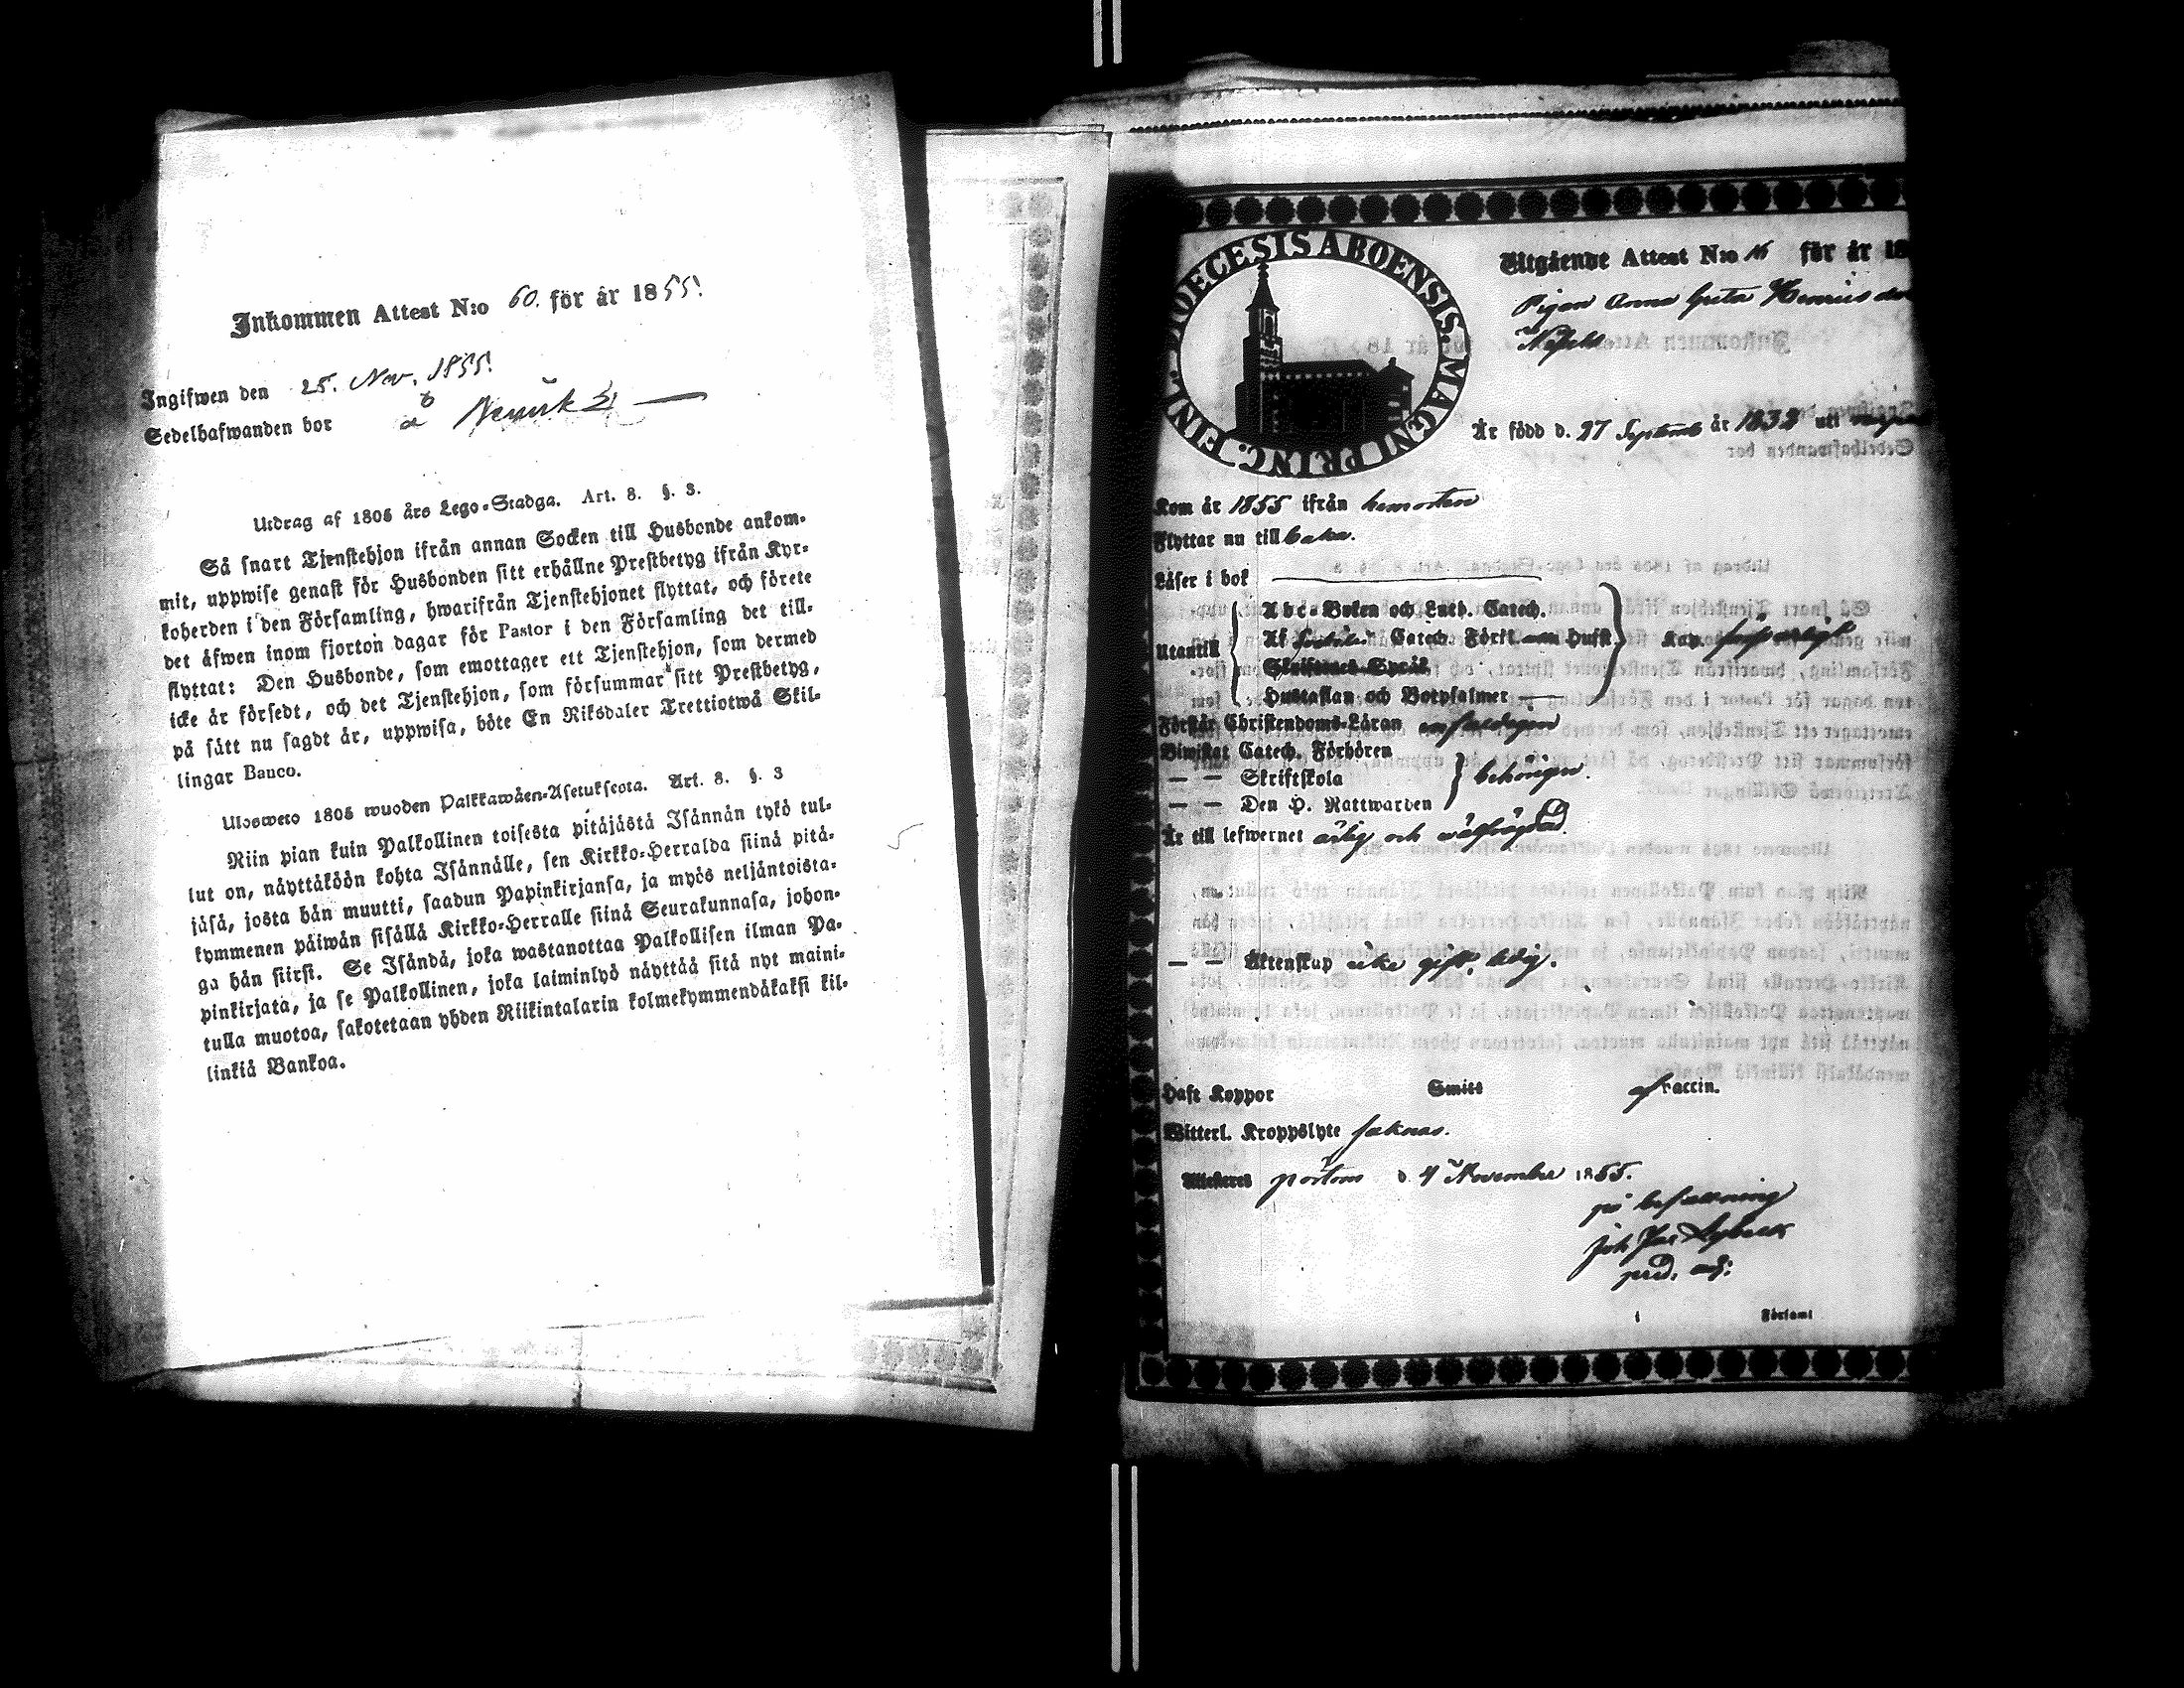 Inkommen Attest N:o 60. för år 1855.
Ingifwen den 25. Nov. 1855.
Sedelhafwanden bor å
Utdrag af 1805 års Lego-Stadga. Art. 8. §. 3.
Så snart Tjenstehjon ifrån annan Socken till Husbonde ankom-
mit, uppwise genast för Husbonden sitt erhållne Prestbetyg ifrån Kyr-
koherden i den Församling, hwarifrån Tjenstehjonet flyttat, och förete
det äfwen inom fjorton dagar för Pastor i den Församling det till-
flyttat: Den Husbonde, som emottager ett Tjenstehjon, som dermed
icke är försedt, och det Tjenstehjon, som försummar sitt Prestbetyg,
på sätt nu sagdt är, uppwisa, böte En Riksdaler Trettiotwå Skil-
lingar Banco.
Ulosweto 1805 wuoden Palkkawäen-Asetuksesta. Art. 8. §. 3
Niin pian kuin Palkollinen toisesta pitäjästä Isännän tykö tul-
lut on, näyttäköön kohta Isännälle, sen Kirkko-Herralda siinä pitä-
jäsä, josta hän muutti, saadun Papinkirjansa, ja myös neljäntoista-
kymmenen päiwän sisällä Kirkko-Herralle siinä Seurakunnasa, johon-
ga hän siirsi. Se Isändä, joka wastanottaa Palkollisen ilman Pa-
pinkirjata, ja se Palkollinen, joka laiminlyö näyttää sitä nyt maini-
tulla muotoa, sakotetaan yhden Riikintalarin kolmekymmendäkaksi kil-
linkiä Bankoa.
DIOECESIS ABOENSIS. MAGNI PRINC. FINL.
Utgående Attest N:o 16 för år 18
Pigan Anna Greta Henriksdr
Är född d. 27 September år 1832 uti
Kom år 1855 ifrån hemorten
Flyttar nu tillbaka.
Läser i bok
Utantill
Abc-Boken och Luth. Catech.
Af Catech. Förkl. Hust.
Skriftenes Språk
Hustaflan och Botpsalmer
Kan försvarligt
Förstår Christendoms-Läran enfaldigen
Biwistat Catech. Förhören
— — Skriftskola behörigen.
— — Den H. Nattwarden
Är till lefwernet ärlig och wälfrägdad.
— — Äktenskap icke gift, ledig.
Haft Koppor Smitt af Vaccin.
Witterl. Kroppslyte saknas.
Attesteres Pörtom d. 4 November 1855.
på befallning
Joh
pred. adj:
i Församl